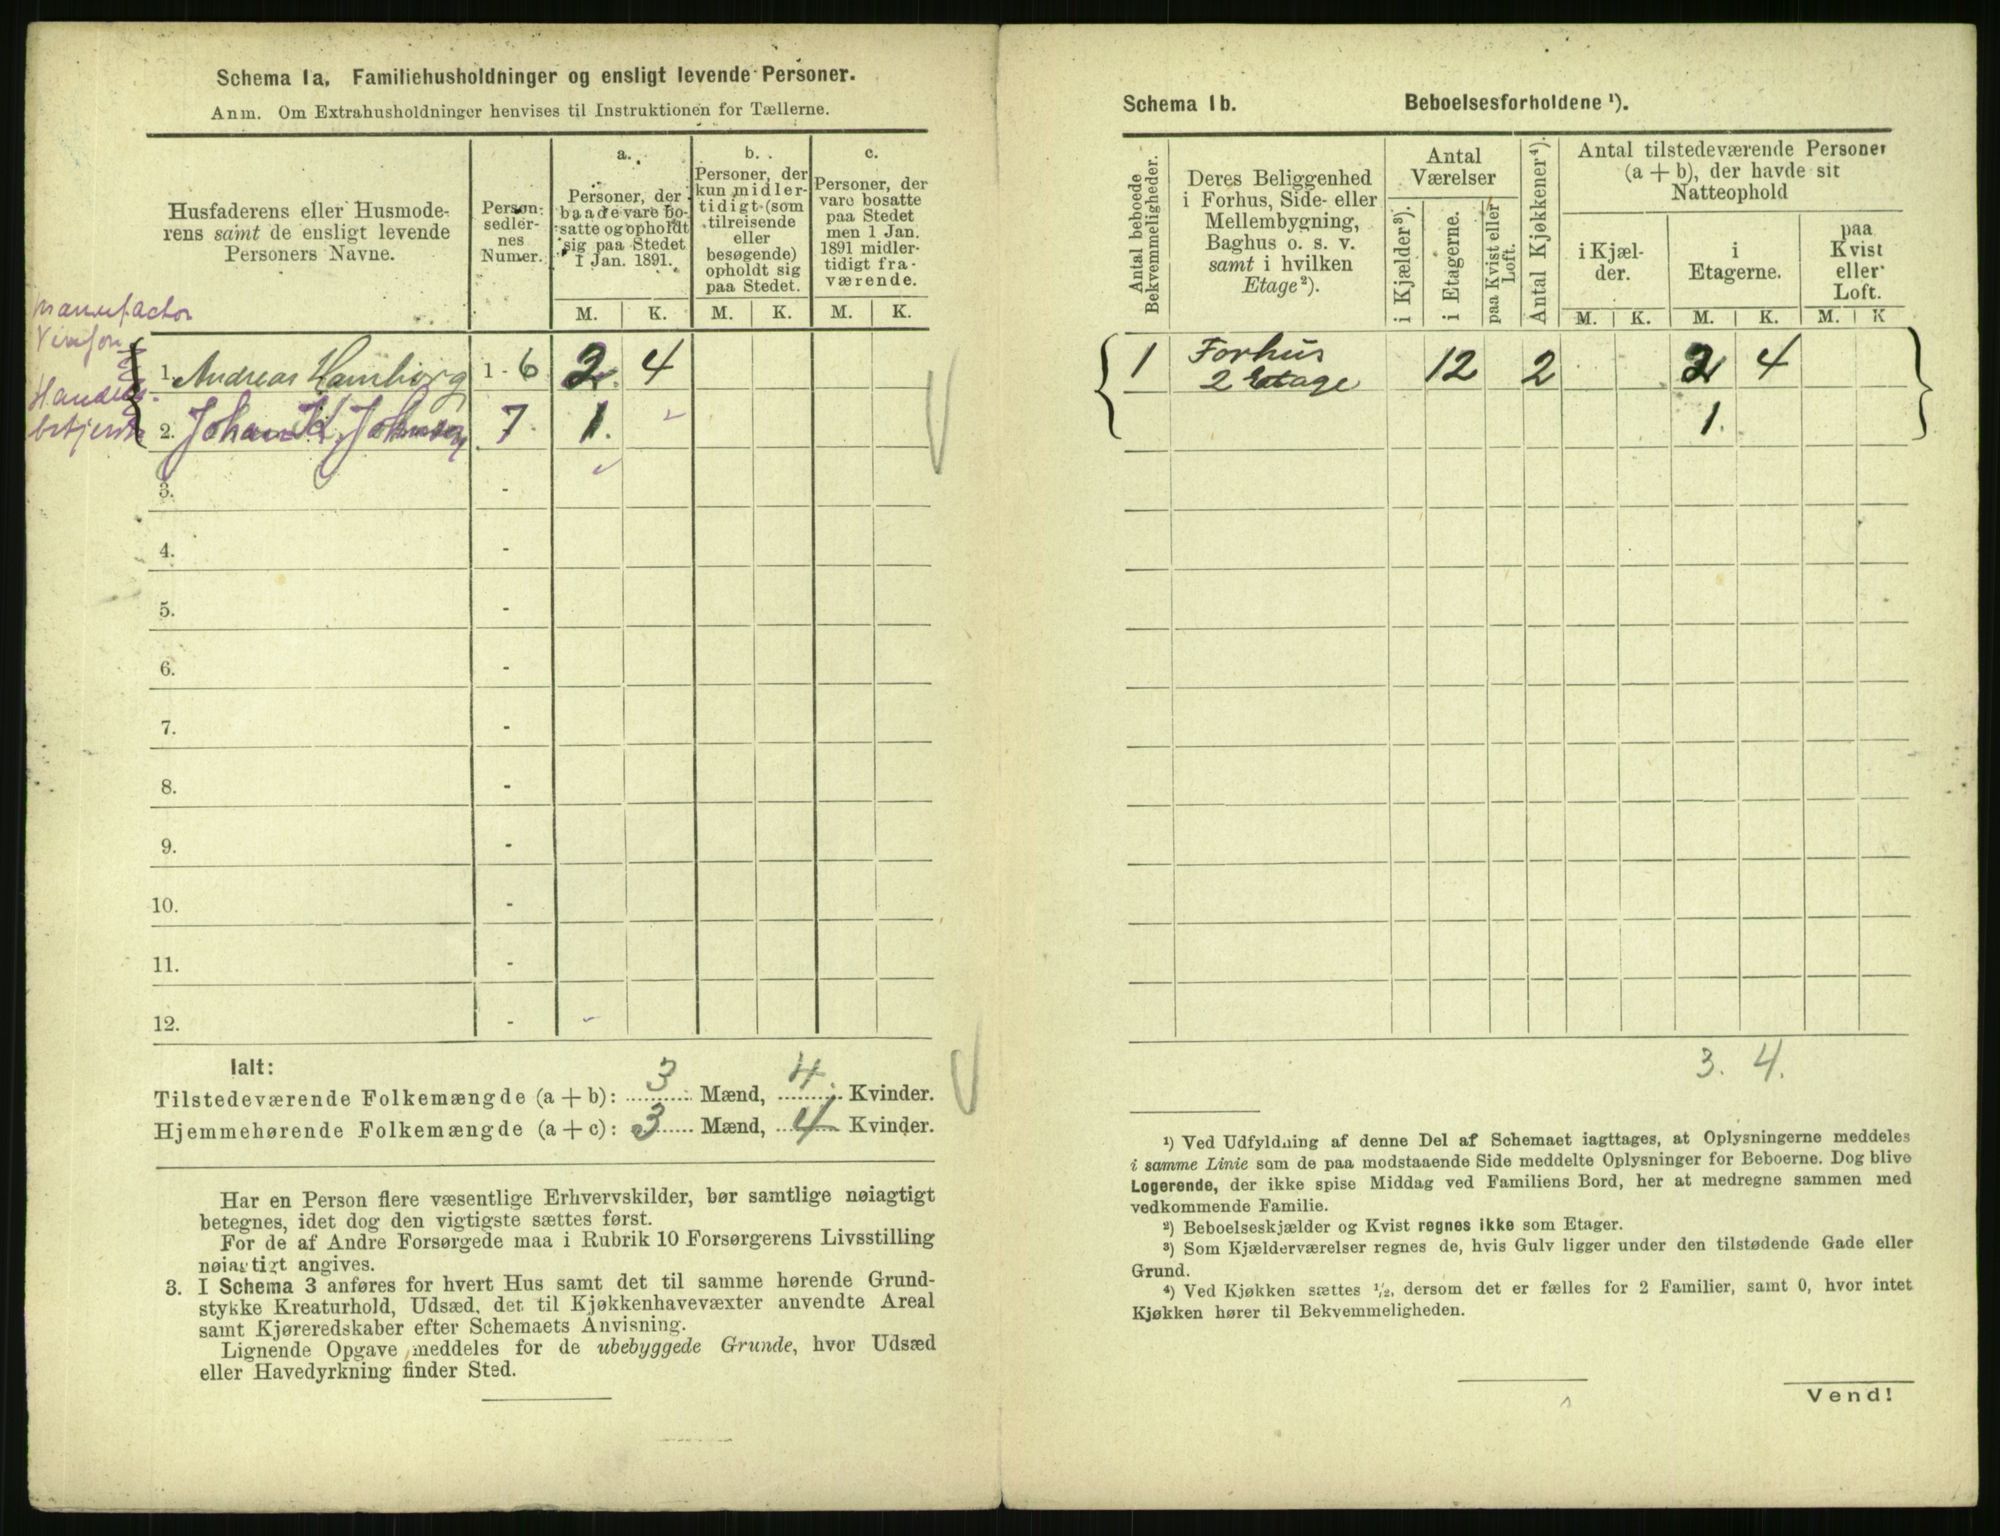 Schema 1a. Familiehusholdninger og ensligt levende Personer.
Anm. Om Extrahusholdninger henvises til Instruktionen for Tællerne.
Husfaderens eller Husmode-
rens samt de ensligt levende
Personers Navne.
Person-
sedler-
nes
Numer.
a.
Personer, der
baade vare bo-
satte og opholdt
sig paa Stedet
1 Jan. 1891.
b.
Personer, der
kun midler-
tidigt (som
tilreisende
eller
besøgende)
opholdt sig
paa Stedet.
c.
Personer, der
vare bosatte
paa Stedet
men 1 Jan.
1891 midler-
tidigt fra-
værende.
M. K. M. K. M. K.
Manufactor
1. Andreas Hamborg 1 - 6 2 4
2. Johan K. Johnsen 7 1.
3. -
4. -
5. -
6. -
7. -
8. -
9. -
10. -
11. -
12. -
Ialt:
Tilstedeværende Folkemængde (a + b): 3 Mænd, 4 Kvinder.
Hjemmehørende Folkemængde (a + c): 3 Mænd, 4 Kvinder.
Har en Person flere væsentlige Erhvervskilder, bør samtlige nøiagtigt
betegnes, idet dog den vigtigste sættes først.
For de af Andre Forsørgede maa i Rubrik 10 Forsørgerens Livsstilling
nøiagtigt angives.
3. I Schema 3 anføres for hvert Hus samt det til samme hørende Grund-
stykke Kreaturhold, Udsæd, det til Kjøkkenhavevæxter anvendte Areal
samt Kjøreredskaber efter Schemaets Anvisning.
Lignende Opgave meddeles for de ubebyggede Grunde, hvor Udsæd
eller Havedyrkning finder Sted.
Schema 1b. Beboelsesforholdene ¹).
Antal beboede
Bekvemmeligheder.
Deres Beliggenhed
i Forhus, Side- eller
Mellembygning,
Baghus o. s. v.
samt i hvilken
Etage²).
Antal
Værelser
i Kjælder³).
i Etagerne.
paa Kvist eller
Loft.
Antal Kjøkkener⁴).
Antal tilstedeværende Personer
(a + b), der havde sit
Natteophold
i Kjæl-
der.
i
Etagerne.
paa
Kvist
eller
Loft.
M. K. M. K. M. K
1 Forhus
2 Etage 12 2 2 4
1.
3. 4.
¹) Ved Udfyldning af denne Del af Schemaet iagttages, at Oplysningerne meddeles
i samme Linie som de paa modstaaende Side meddelte Oplysninger for Beboerne. Dog blive
Logerende, der ikke spise Middag ved Familiens Bord, her at medregne sammen med
vedkommende Familie.
²) Beboelseskjælder og Kvist regnes ikke som Etager.
³) Som Kjælderværelser regnes de, hvis Gulv ligger under den tilstødende Gade eller
Grund.
⁴) Ved Kjøkken sættes ½, dersom det er fælles for 2 Familier, samt 0, hvor intet
Kjøkken hører til Bekvemmeligheden.
Vend!